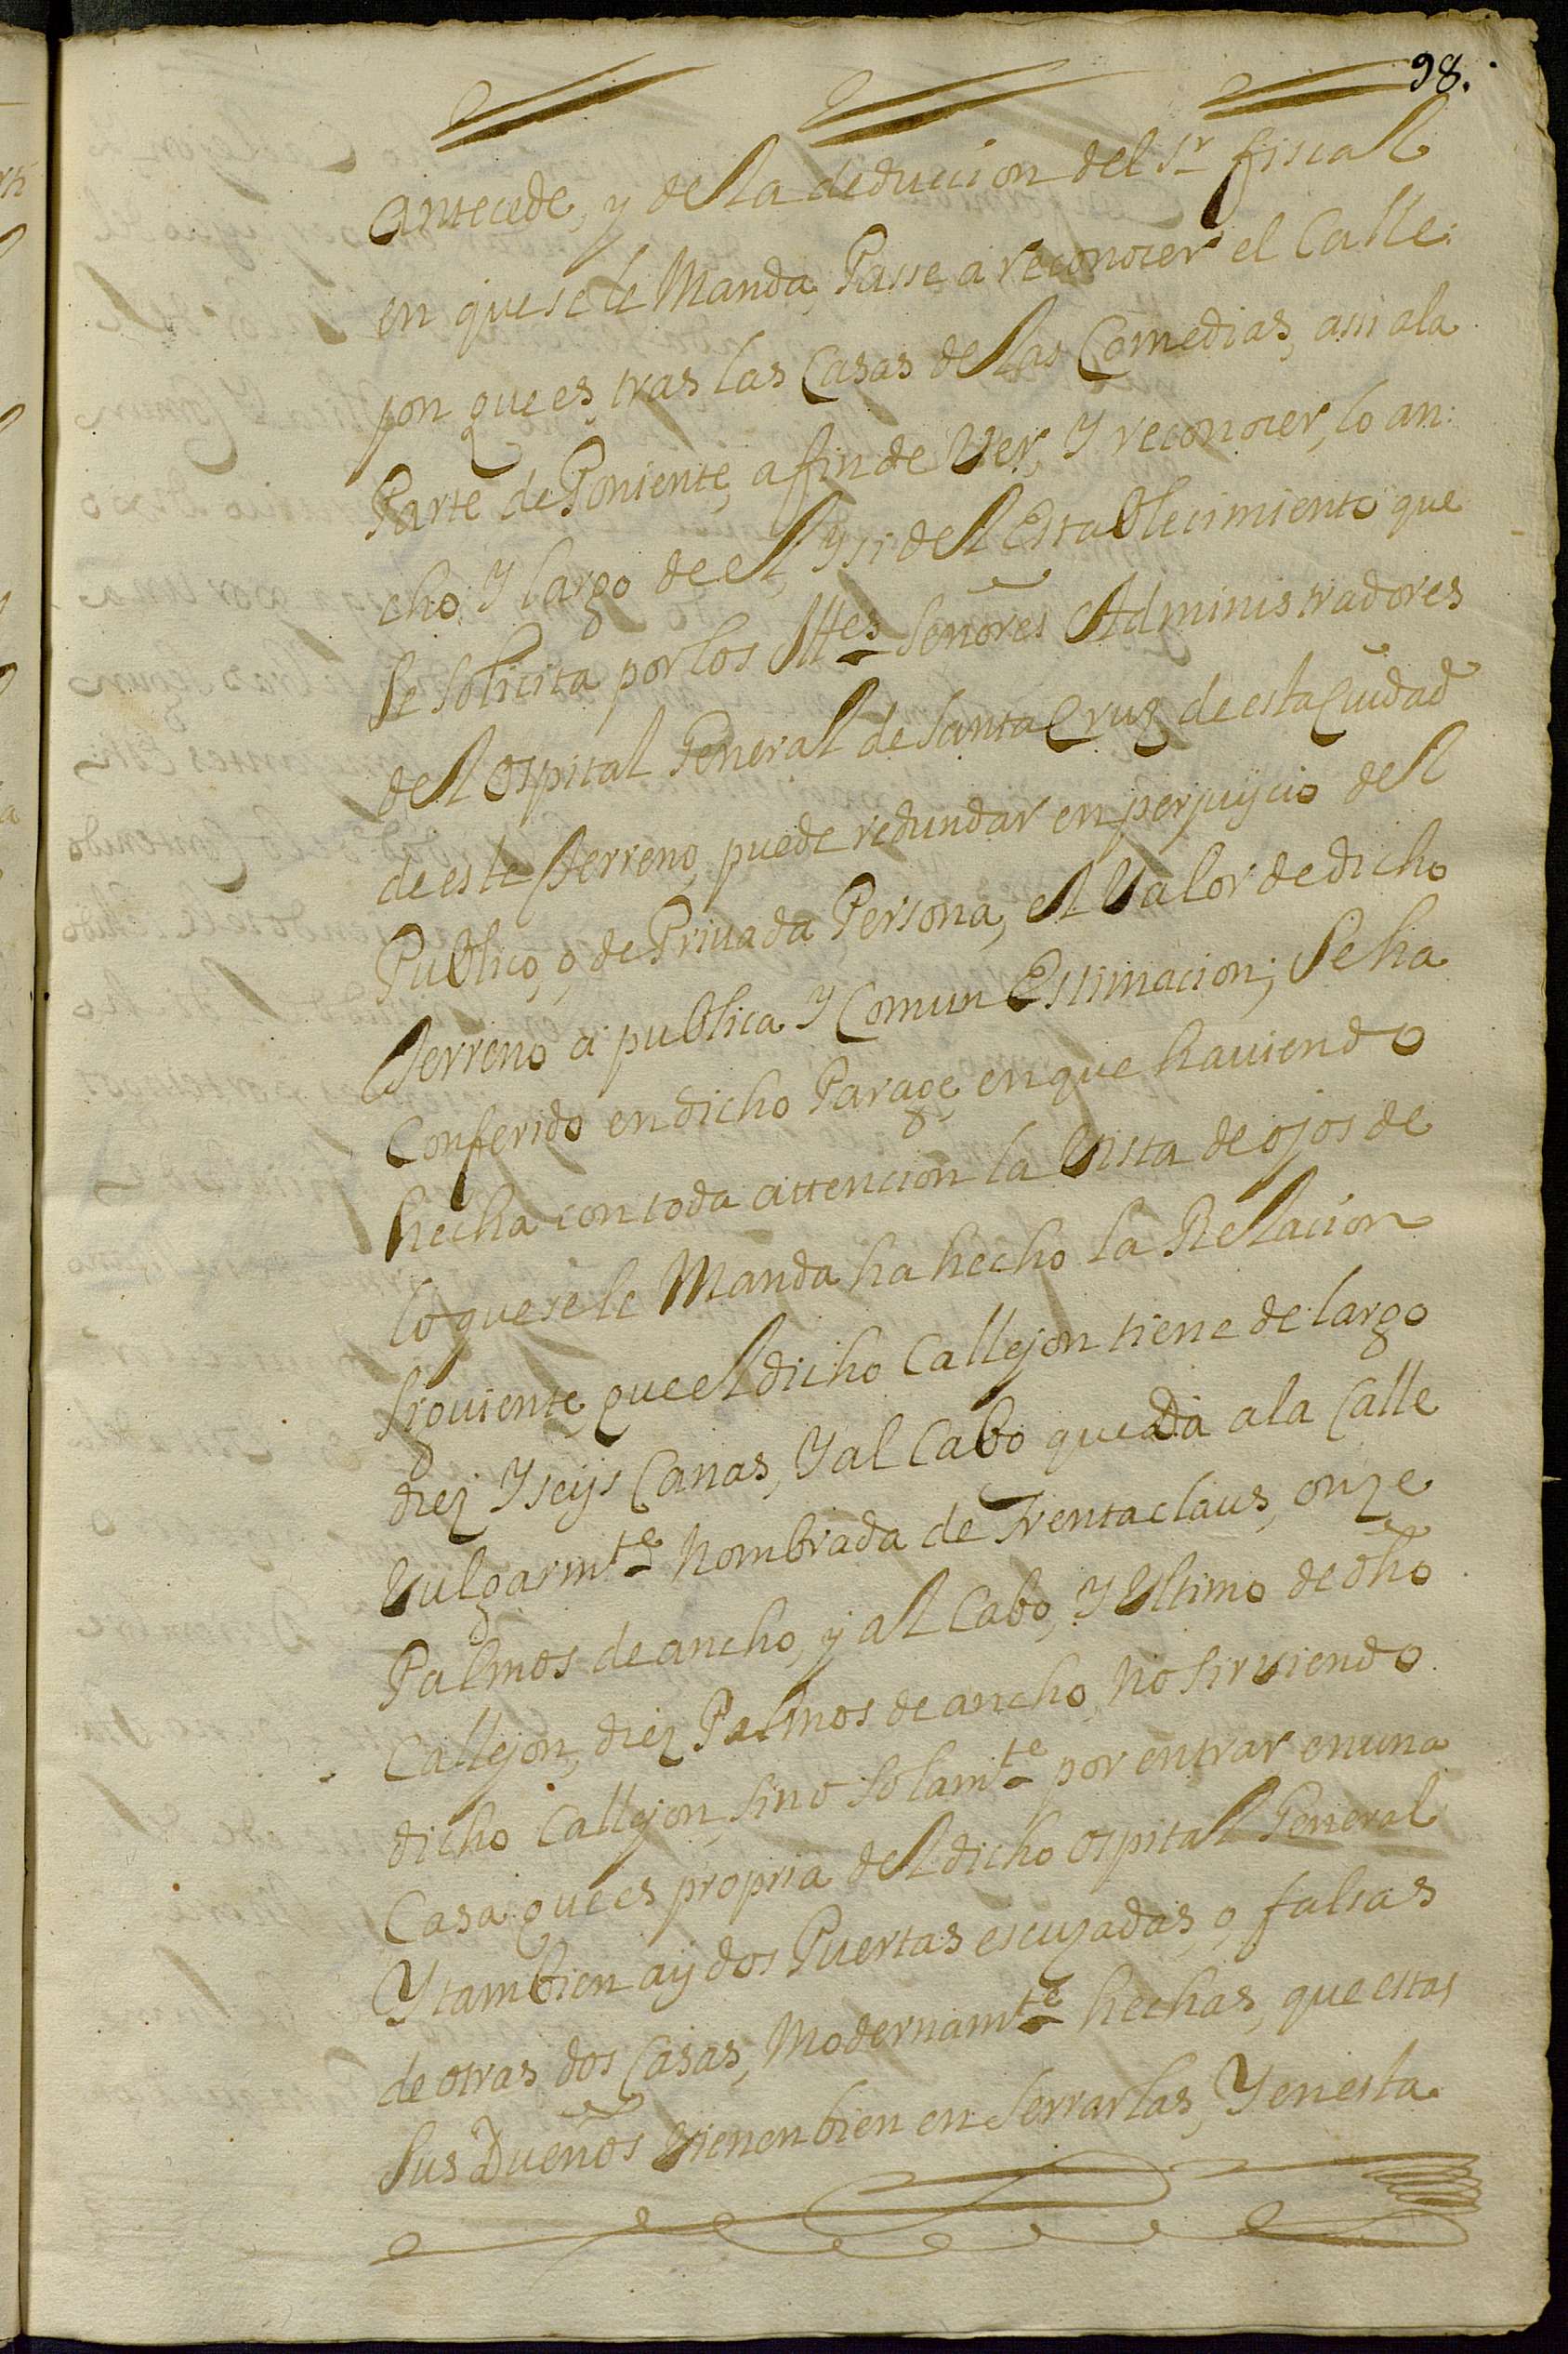 98.
Antecede, y de la deduccion del Sr. fiscal
en que se le Manda, Passe a reconocer el Calle:
jon que es tras las Casas de las Comedias, assi a la
Parte de Poniente, a fin de Ver, Y reconocer, lo an:
cho, Y largo de el, y si del Establecimiento que
se solicita por los Mttes Señores Administradores
del Ospital General de Santa Cruz de esta Ciudad
de este Terreno, puede redundar en perjuyicio del
Publico, o, de Privada Persona, el Valor de dicho
Terreno a publica Y Comun Estimacion; Se ha
Conferido en dicho Parage, en que haviendo
hecha con toda attencion la Vista de ojos de
lo que se le Manda ha hecho la Relacion
siguiente, que el dicho Callejon tiene de largo
diez Y seys Canas, Y al Cabo que da a la Calle
Vulgarmte. Nombrada de Trentaclaus, onze
Palmos de ancho, y al Cabo, Y Ultimo de dho
Callejon, diez Palmos de ancho, No sirviendo
dicho Callejon, sino solamte. por entrar en una
Casa que es propria del dicho Ospital General
Y tambien ay dos Puertas escuzadas, o, falsas
de otras dos Casas, Modernamte. hechas, que estas
sus Dueños vienen bien en serrarlas, Y en esta